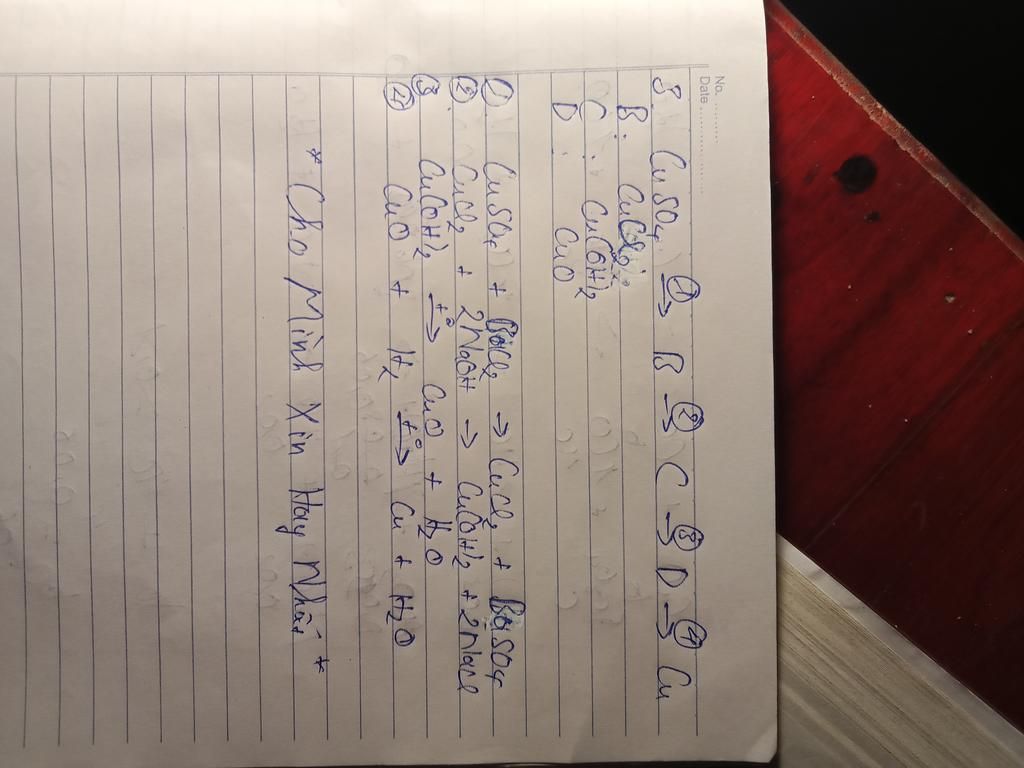 No. ............
Date ......................
8. CuSO4 ①→ B ②→ C ③→ D ④→ Cu
B : CuCl2
C : Cu(OH)2
D : CuO
① CuSO4 + BaCl2 → CuCl2 + BaSO4
② CuCl2 + 2NaOH → Cu(OH)2 + 2NaCl
③ Cu(OH)2 t°→ CuO + H2O
④ CuO + H2 t°→ Cu + H2O
* Cho Mình Xin Hay Nhất *